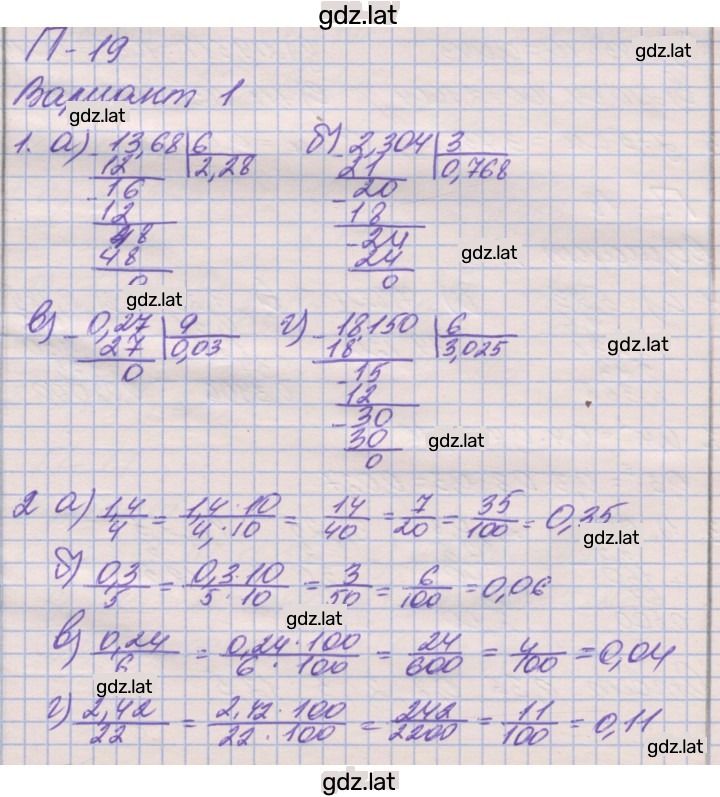 gdz.lat
П-19
gdz.lat
Вариант 1
gdz.lat
1. а) 13,68 | 6
12 2,28
16
12
48
48
0
б) 2,304 | 3
21 0,768
20
18
24
24
0
gdz.lat
gdz.lat
в) 0,27 | 9
27 0,03
0
г) 18,150 | 6
18 3,025
15
12
30
30
0
gdz.lat
gdz.lat
2 а) 1,4/4 = 1,4·10/4·10 = 14/40 = 7/20 = 35/100 = 0,35
gdz.lat
б) 0,3/5 = 0,3·10/5·10 = 3/50 = 6/100 = 0,06
gdz.lat
в) 0,24/6 = 0,24·100/6·100 = 24/600 = 4/100 = 0,04
gdz.lat
г) 2,42/22 = 2,42·100/22·100 = 242/2200 = 11/100 = 0,11
gdz.lat
gdz.lat